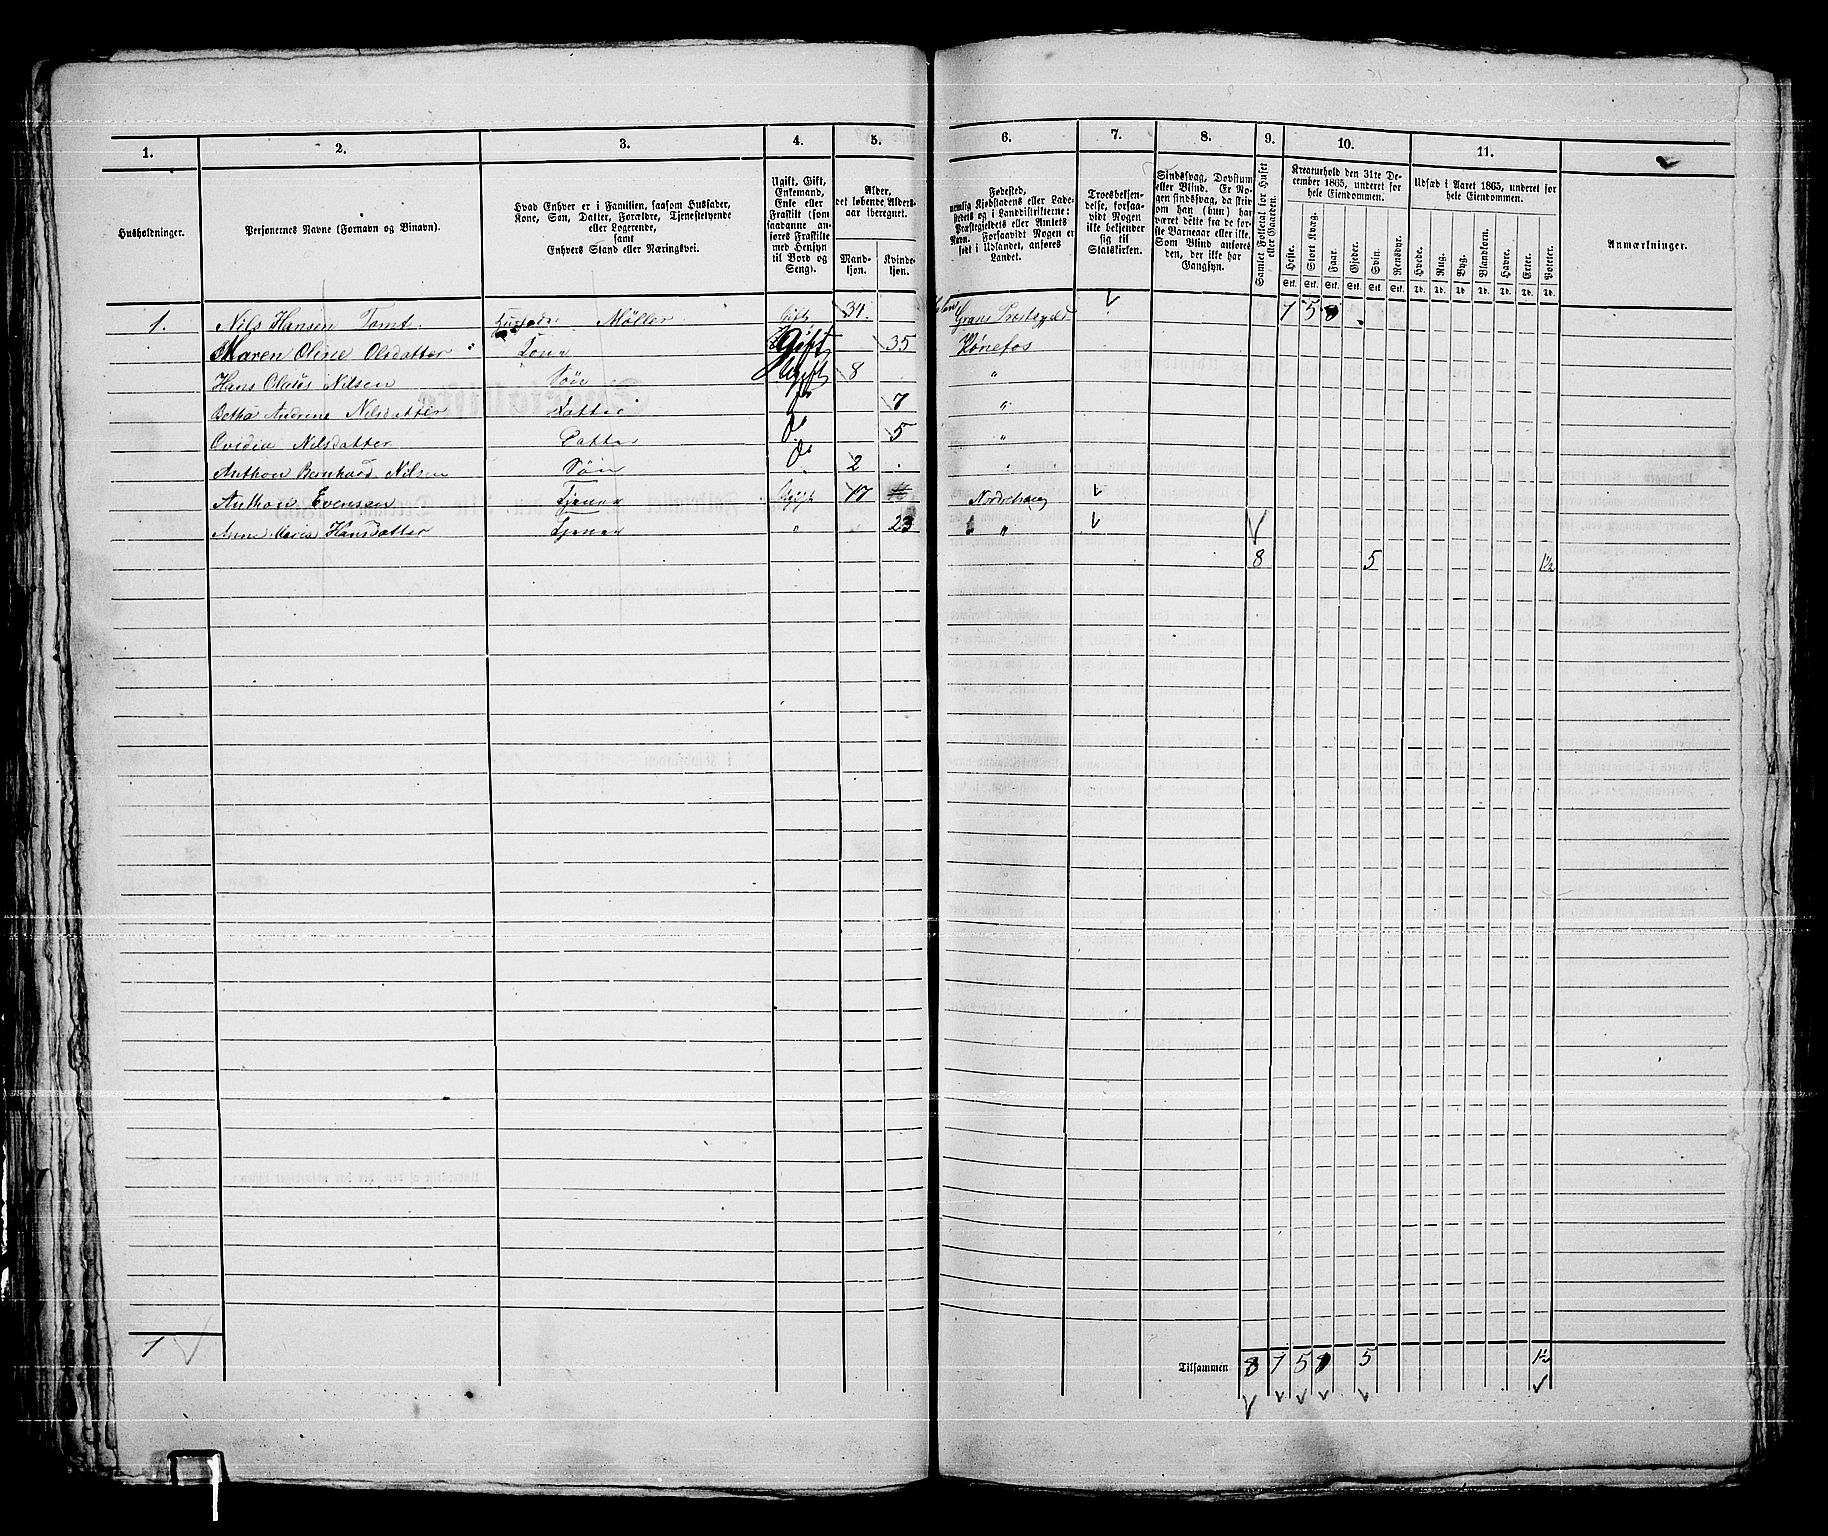 1. 2. 3. 4. 5. 6. 7. 8. 9. 10. 11.
Husholdninger.
Personernes Navne (Fornavn og Binavn).
Hvad Enhver er i Familien, saasom Husfader,
Kone, Søn, Datter, Forældre, Tjenestetyende
eller Logerende,
samt
Enhvers Stand eller Næringsvei.
Ugift, Gift,
Enkemand,
Enke eller
Fraskilt (som
saadanne an-
føres Fraskilte
med Hensyn
til Bord og
Seng).
Alder,
det løbende Alders-
aar iberegnet.
Mand-
kjøn.
Kvinde-
kjøn.
Fødested,
nemlig Kjøbstadens eller Lade-
stedets og i Landdistrikterne:
Præstegjeldets eller Amtets
Navn. Forsaavidt Nogen er
født i Udlandet, anføres
Landet.
Troesbekjen-
delse, forsaa-
vidt Nogen
ikke bekjender
sig til
Statskirken.
Sindssvag, Døvstum
eller Blind. Er No-
gen sindssvag, da skrives
om han (hun) har
været dette fra de før-
ste Barneaar eller ikke.
Som Blind anføres
den, der ikke har
Gangsyn.
Samlet Folketal for Huset
eller Gaarden.
Kreaturhold den 31te De-
cember 1865, underet for
hele Eiendommen.
Heste. Stort Kvæg. Faar. Gjeder. Svin. Rensdyr.
Stk. Stk. Stk. Stk. Stk. Stk.
Udsæd i Aaret 1865, underet for
hele Eiendommen.
Hvede. Rug. Byg. Blandkorn. Havre. Erter. Poteter.
Td. Td. Td. Td. Td. Td. Td.
Anmærkninger.
1. Nils Hansen Tomt. Husfader Møller Gift 34 Grans Prestegjeld 1 5 8
Maren Oline Olsdatter Kone Gift 35 Hønefos
Hans Olaus Nilsen Søn Ugift 8 "
Betha Andrine Nilsdatter Datter do 7 "
Ovidia Nilsdatter Datter do 5 "
Anthon Bernhard Nilsen Søn do 2 "
Anthon Evensen Tjener Ugift 17 Norderhoug
Anne Maria Hansdatter Tjener " 23 "
8 5 1½
1
Tilsammen 8 1 5 8 5 1½